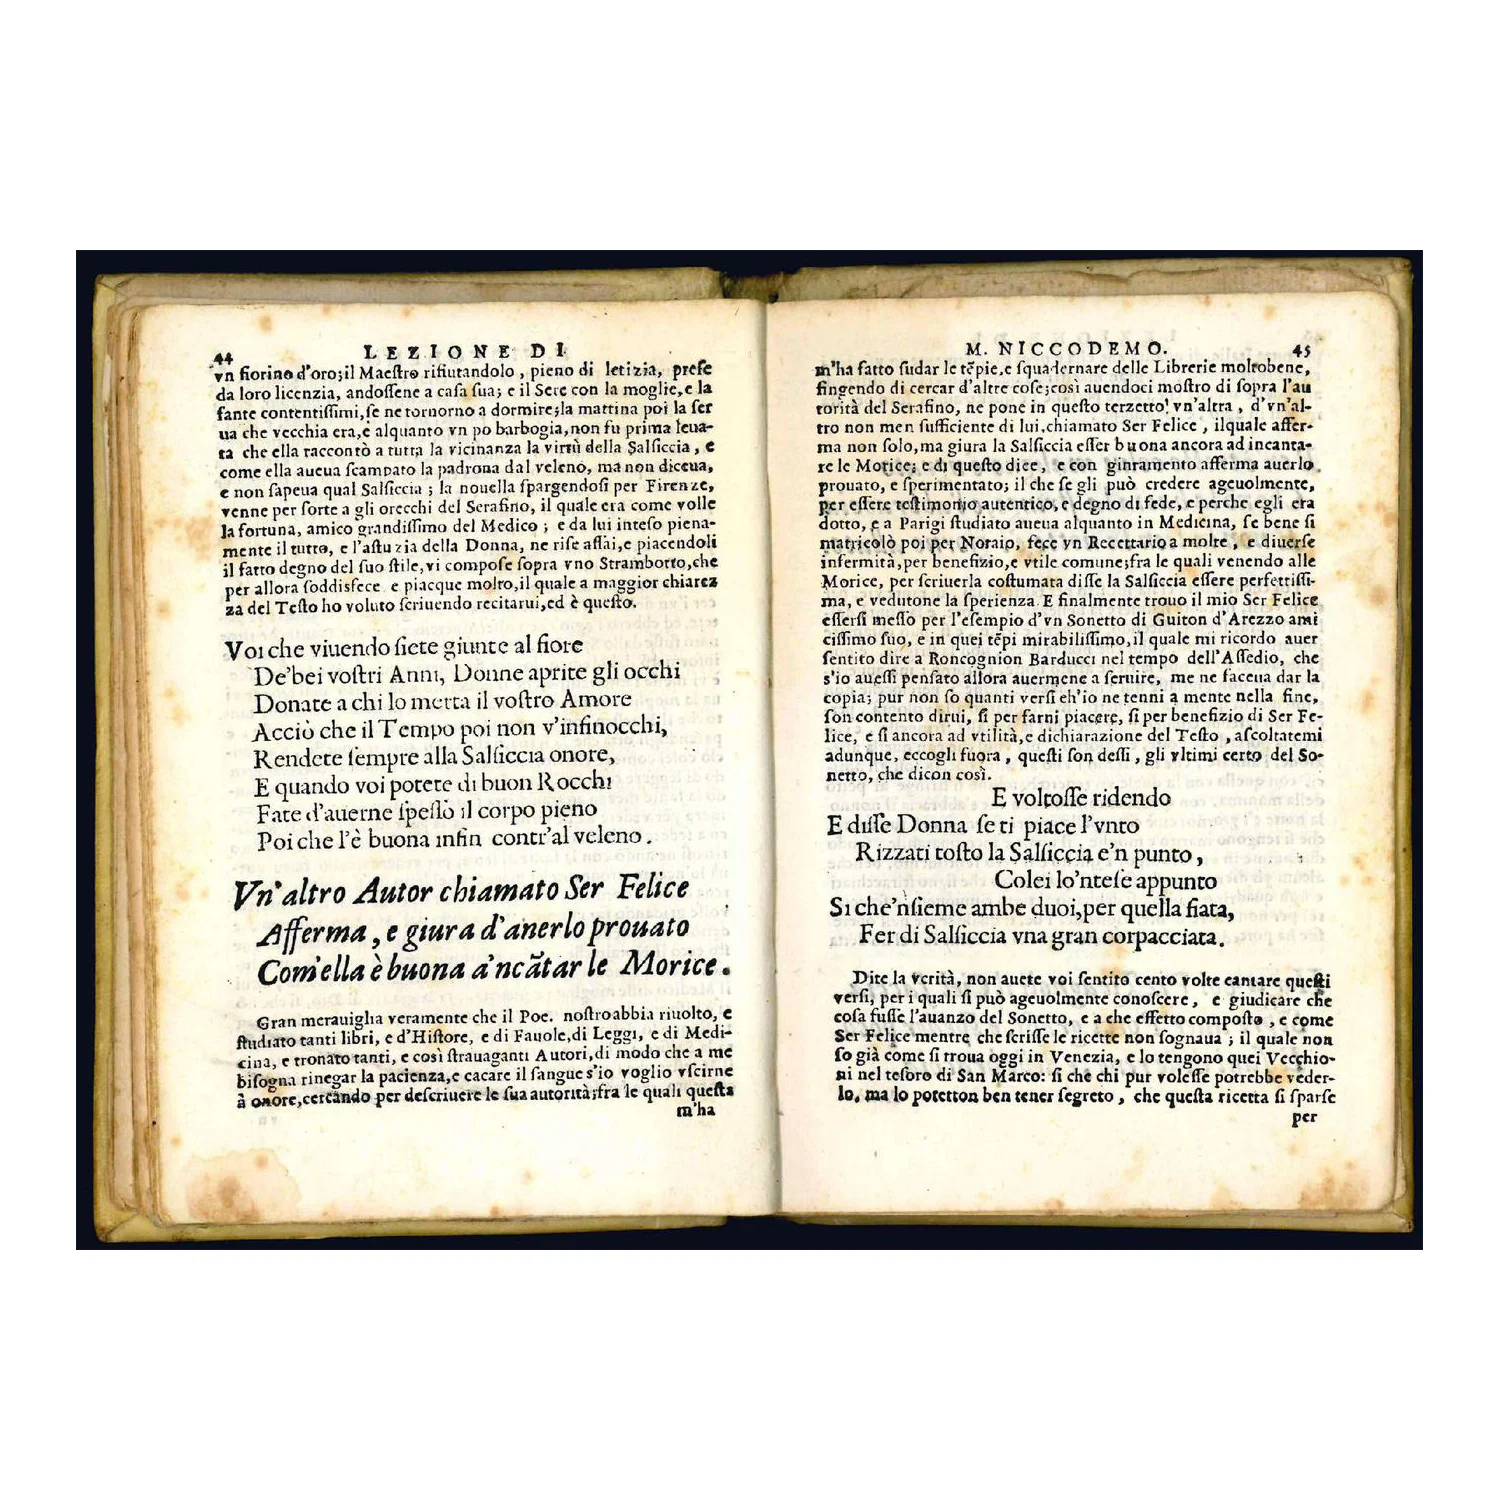 44 LEZIONE DI
vn fiorino d'oro; il Maeſtro rifiutandolo, pieno di letizia, preſe
da loro licenzia, andoſſene a caſa ſua; e il Sere con la moglie, e la
fante contentiſſimi, ſe ne tornorno a dormire; la mattina poi la ſer
ua che vecchia era, e alquanto vn po barbogia, non fu prima leua-
ta che ella raccontò a tutta la vicinanza la virtù della Salſiccia, e
come ella aueua ſcampato la padrona dal veleno, ma non diceua,
e non ſapeua qual Salſiccia; la nouella ſpargendoſi per Firenze,
venne per ſorte a gli orecchi del Serafino, il quale era come volle
la fortuna, amico grandiſſimo del Medico; e da lui inteſo piena-
mente il tutto, e l'aſtuzia della Donna, ne riſe aſſai, e piacendoli
il fatto degno del ſuo ſtile, vi compoſe ſopra vno Strambotto, che
per allora ſoddisfece e piacque molto, il quale a maggior chiarez
za del Teſto ho voluto ſcriuendo recitarui, ed è queſto.
Voi che viuendo ſiete giunte al fiore
De'bei voſtri Anni, Donne aprite gli occhi
Donate a chi lo merta il voſtro Amore
Acciò che il Tempo poi non v'infinocchi,
Rendete ſempre alla Salſiccia onore,
E quando voi potete di buon Rocchi
Fate d'auerne ſpeſſo il corpo pieno
Poi che l'è buona infin contr'al veleno.
Vn'altro Autor chiamato Ser Felice
Afferma, e giura d'auerlo prouato
Com'ella è buona a'ncãtar le Morice.
Gran merauiglia veramente che il Poe. noſtro abbia riuolto, e
ſtudiato tanti libri, e d'Hiſtore, e di Fauole, di Leggi, e di Medi-
cina, e trouato tanti, e così ſtrauaganti Autori, di modo che a me
biſogna rinegar la pacienza, e cacare il ſangue s'io voglio vſcirne
à onore, cercando per deſcriuere le ſua autorità; fra le quali queſta
m'ha
M. NICCODEMO. 45
m'ha fatto ſudar le tẽpie, e ſquadernare delle Librerie molto bene,
fingendo di cercar d'altre coſe; così auendoci moſtro di ſopra l'au
torità del Serafino, ne pone in queſto terzetto vn'altra, d'vn'al-
tro non men ſufficiente di lui, chiamato Ser Felice, il quale affer-
ma non ſolo, ma giura la Salſiccia eſſer buona ancora ad incanta-
re le Morice; e di queſto dice, e con giuramento afferma auerlo
prouato, e ſperimentato; il che ſe gli può credere ageuolmente,
per eſſere teſtimonio autentico, e degno di fede, e perche egli era
dotto, e a Parigi ſtudiato aueua alquanto in Medicina, ſe bene ſi
matricolò poi per Notaio, fece vn Recettario a molte, e diuerſe
infermità, per benefizio, e vtile comune; fra le quali venendo alle
Morice, per ſcriuerla coſtumata diſſe la Salſiccia eſſere perfettiſſi-
ma, e vedutone la ſperienza E finalmente trouo il mio Ser Felice
eſſerſi meſſo per l'eſempio d'vn Sonetto di Guiton d'Arezzo ami
ciſſimo ſuo, e in quei tẽpi mirabiliſſimo, il quale mi ricordo auer
ſentito dire a Roncognion Barducci nel tempo dell'Aſſedio, che
s'io aueſſi penſato allora auermene a ſeruire, me ne faceua dar la
copia; pur non ſo quanti verſi ch'io ne tenni a mente nella fine,
ſon contento dirui, ſi per farui piacere, ſi per benefizio di Ser Fe-
lice, e ſi ancora ad vtilità, e dichiarazione del Teſto, aſcoltatemi
adunque, eccogli fuora, queſti ſon deſſi, gli vltimi certo del So-
netto, che dicon così.
E voltoſſe ridendo
E diſſe Donna ſe ti piace l'vnto
Rizzati toſto la Salſiccia e'n punto,
Colei lo'nteſe appunto
Si che'nſieme ambe duoi, per quella fiata,
Fer di Salſiccia vna gran corpacciata.
Dite la verità, non auete voi ſentito cento volte cantare queſti
verſi, per i quali ſi può ageuolmente conoſcere, e giudicare che
coſa fuſſe l'auanzo del Sonetto, e a che effetto compoſto, e come
Ser Felice mentre che ſcriſſe le ricette non ſognaua; il quale non
ſo già come ſi troua oggi in Venezia, e lo tengono quei Vecchio-
ni nel teſoro di San Marco: ſi che chi pur voleſſe potrebbe veder-
lo, ma lo potetton ben tener ſegreto, che queſta ricetta ſi ſparſe
per